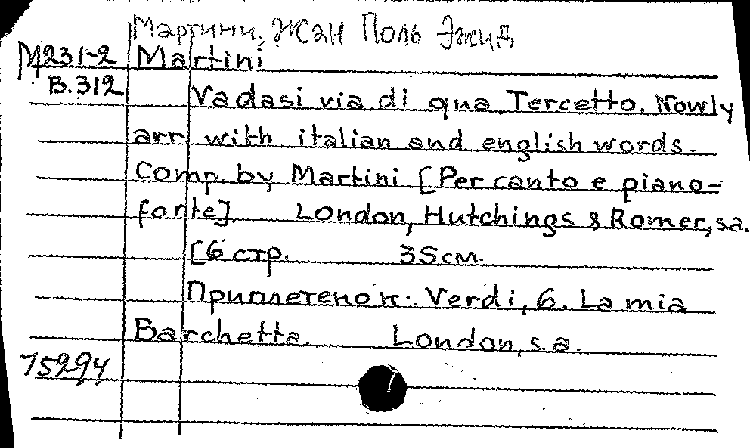 Мартини, Жан Поль Эжид
М231-2 Martini
В.312 Vadasi via di qua Tercetto. Nowly
arr with italian and english words.
Comp. by Martini [Per canto e piano-
forte] London, Hutchings & Romer, s.a.
[6 стр. 35см.
Приплетено к: Verdi, G. La mia
Barchetta London, s.a.
75294